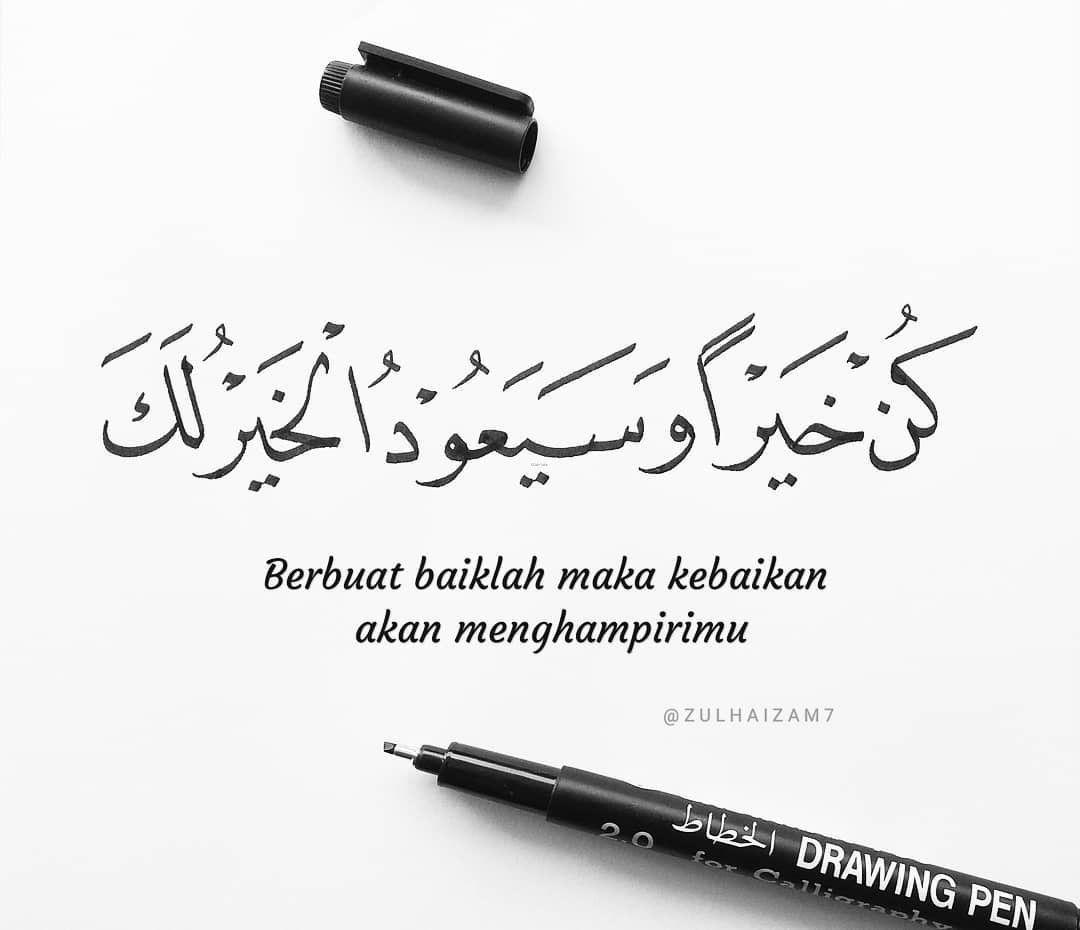 كُنْ خَيْرًا وَسَيَعُوْدُ الْخَيْرُ لَكَ
Berbuat baiklah maka kebaikan
akan menghampirimu
@ZULHAIZAM7
2.0 الخطاط DRAWING PEN
for Calligraphy